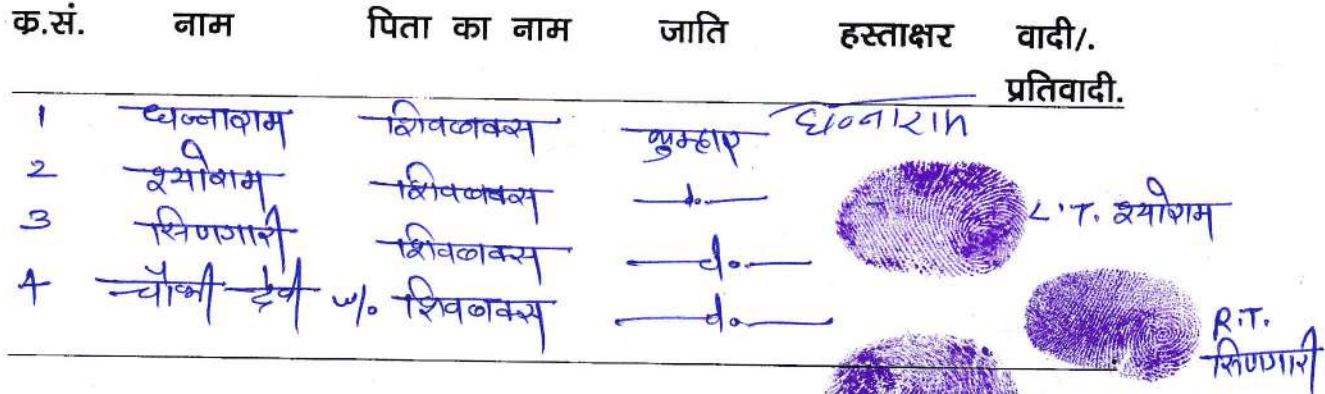 क्र.सं. नाम पिता का नाम जाति हस्ताक्षर वादी/.
प्रतिवादी.
1 धन्नाराम शिवबक्स कुम्हार धन्नाराम
2 श्योराम शिवबक्स —d.— L.T. श्योराम
3 सिणगारी शिवबक्स —d.—
4 चौथी देवी w/o शिवबक्स —d.— R.T.
सिणगारी